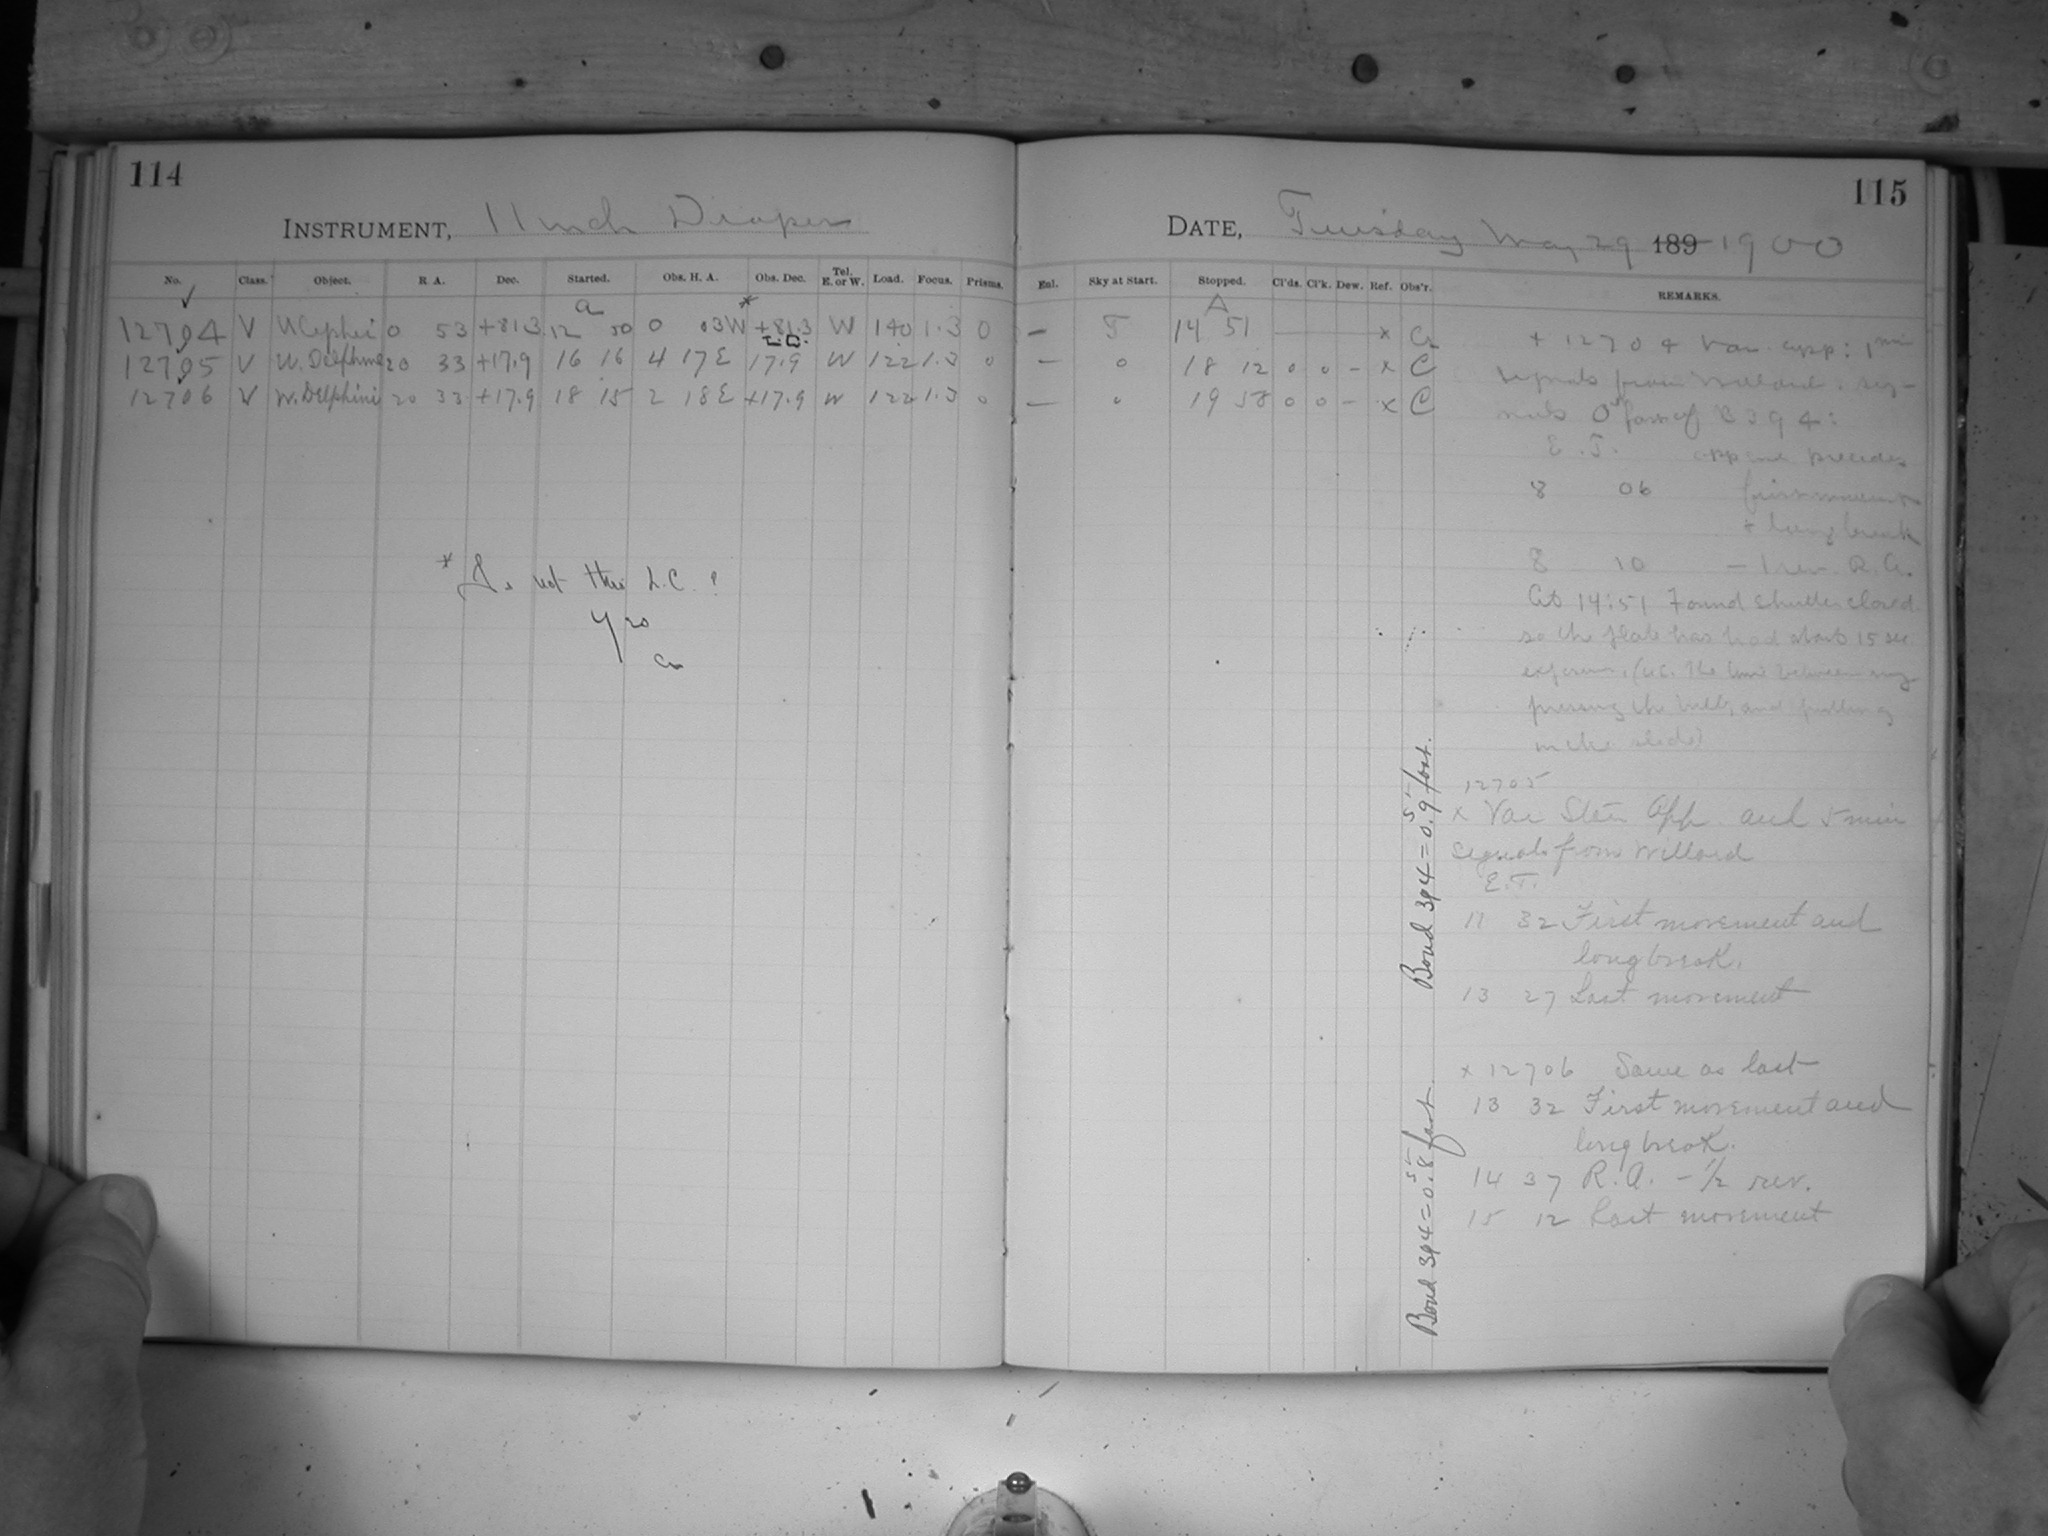 114
INSTRUMENT, 11 inch Draper
No. Class. Object. R. A. Dec. Started. Obs. H. A. Obs. Dec. Tel. E. or W. Load. Focus. Prisms.
12704 V U Cephei 0 53 +81.3 12 50 0 03W +81.3 W 140 1.3 0
L.C.
12705 V W. Delphini 20 33 +17.9 16 16 4 17E 17.9 W 122 1.3 0
12706 V W. Delphini 20 33 +17.9 18 15 2 18E +17.9 W 122 1.3 0
* Is not this L.C.?
Yes
115
DATE, Tuesday May 29 189 1900
Enl. Sky at Start. Stopped. Cl'ds. Cl'k. Dew. Ref. Obs'r. REMARKS.
A
— 14 51 x
— 0 18 12 0 0 – x C
— 0 19 58 0 0 – x C
+ 12704 Var. app: 1 min
signals from Willard: sig-
nals 0 fast of B 394:
E.T. precedes
8 06 first movement
& long break
8 10 – 1 rev. R.A.
At 14:51 Found shutter closed
so the plate has had about 15 sec
exposure, (i.e. the time between my
pressing the bulb, and pulling
in the slide)
12705
x Var Star App. and 5 min
signals from Willard
E.T.
11 32 First movement and
long break.
13 27 Last movement
x 12706 Same as last
13 32 First movement and
long break.
14 37 R.A. – 1/2 rev.
15 12 Last movement
Bond 394 = 0.9s fast.
Bond 394 = 0.8s fast